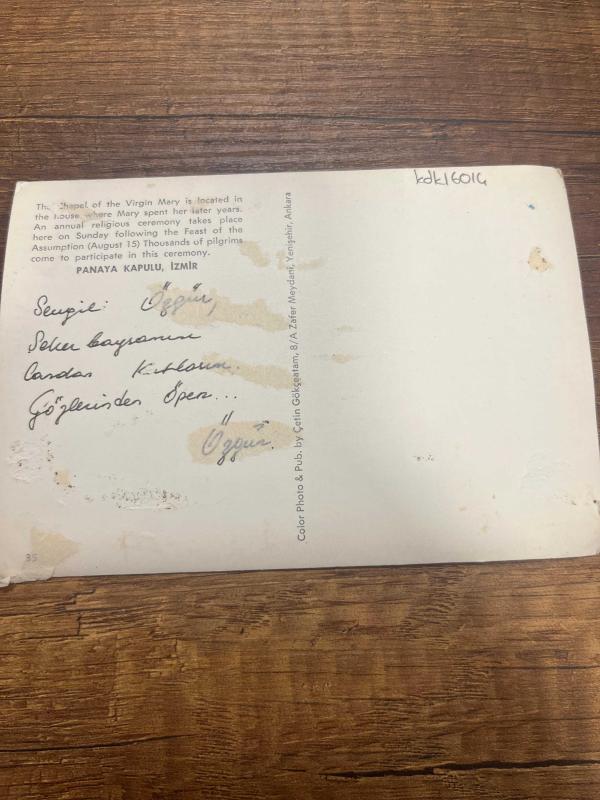 kdk16014
The Chapel of the Virgin Mary is located in
the house where Mary spent her later years.
An annual religious ceremony takes place
here on Sunday following the Feast of the
Assumption (August 15) Thousands of pilgrims
come to participate in this ceremony.
PANAYA KAPULU, İZMİR
Sevgili Özgür,
Şeker bayramını
candan Kutlarım.
Gözlerinden Öper...
Özgür.
35
Color Photo & Pub. by Çetin Gökçeatam, 8/A Zafer Meydanı, Yenişehir, Ankara